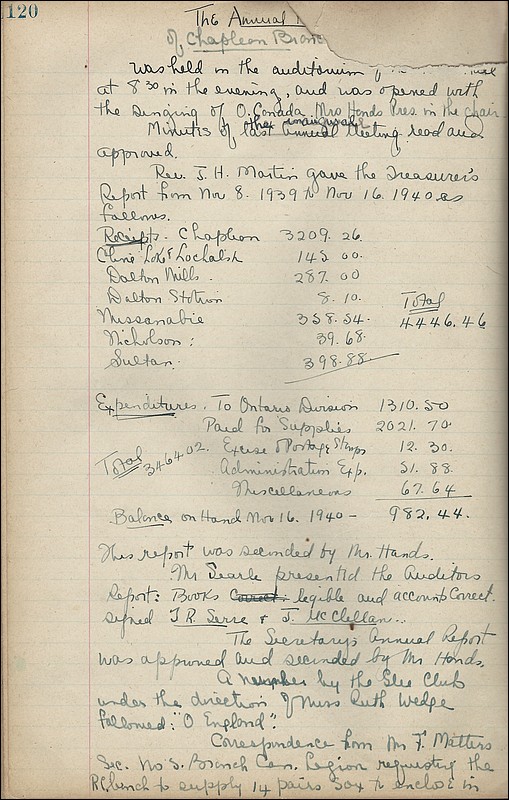 120
The Annual
of Chapleau Branch
was held in the auditorium
at 8 30 in the evening, and was opened with
the singing of O. Canada. Mrs Hands Pres. in the chair
Minutes of last Annual Meeting read and
approved.
Rev. J. H. Martin gave the Treasurer's
Report from Nov 8. 1939 to Nov 16. 1940 as
follows.
Receipts. Chapleau 3209. 26.
Lochalsh 145. 00.
Dalton Mills. 287. 00
Dalton Station 8. 10. Total
Missanabie 338. 54. 4446. 46
Nicholson: 39. 68.
Sultan. 398. 88
Expenditures. To Ontario Division 1310. 50
Paid for Supplies 2021. 70.
Total 3464 02. Excise & Postage Stamps 12. 30.
Administration Exp. 51. 88.
Miscellaneous 67. 64
Balance on Hand Nov 16. 1940 - 982. 44.
This report was seconded by Mr. Hands.
Mr Searle presented the Auditors
Report: Books legible and account correct.
signed J. McClellan
The Secretary's Annual Report
was approved and seconded by Mr Hands.
A number by the Glee Club
under the direction of Miss Ruth Wedge
followed: "O England".
Correspondence from Mr F. Matters
Sec. No 5. Branch Can. Legion requesting the
R.C. branch to supply 14 pairs Sox to enclose in